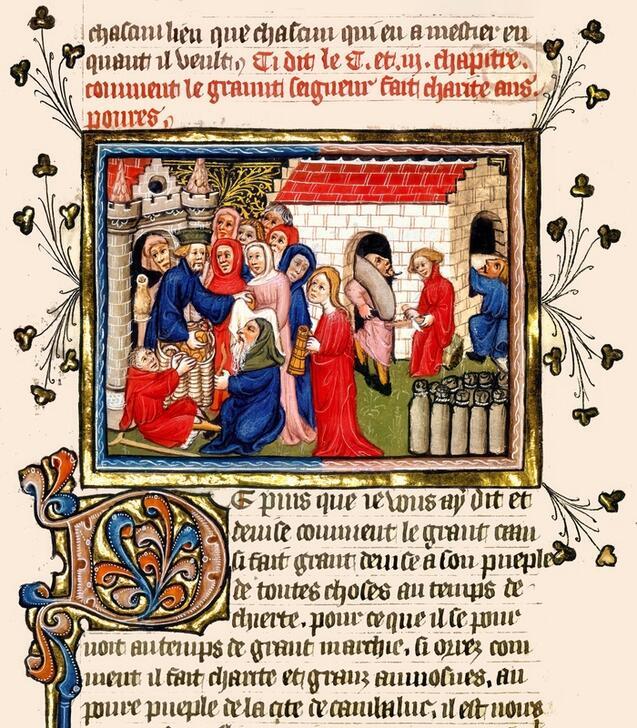 chascun lieu que chascun qui en a mestier en
quant il veult,
Ci dit le C. et. iij. chapitre.
comment le grant seigneur fait charite aus
poures,
De puis que ie vous ay dit et
deuise comment le grant caan
si fait grant deuise a son pueple
de toutes choses au temps de
chierte, pour ce que il se pour
uoit au temps de grant marchie, si orrez com
ment il fait charite et granz aumosnes, au
poure pueple de la cite de cambaluc, il est uoirs